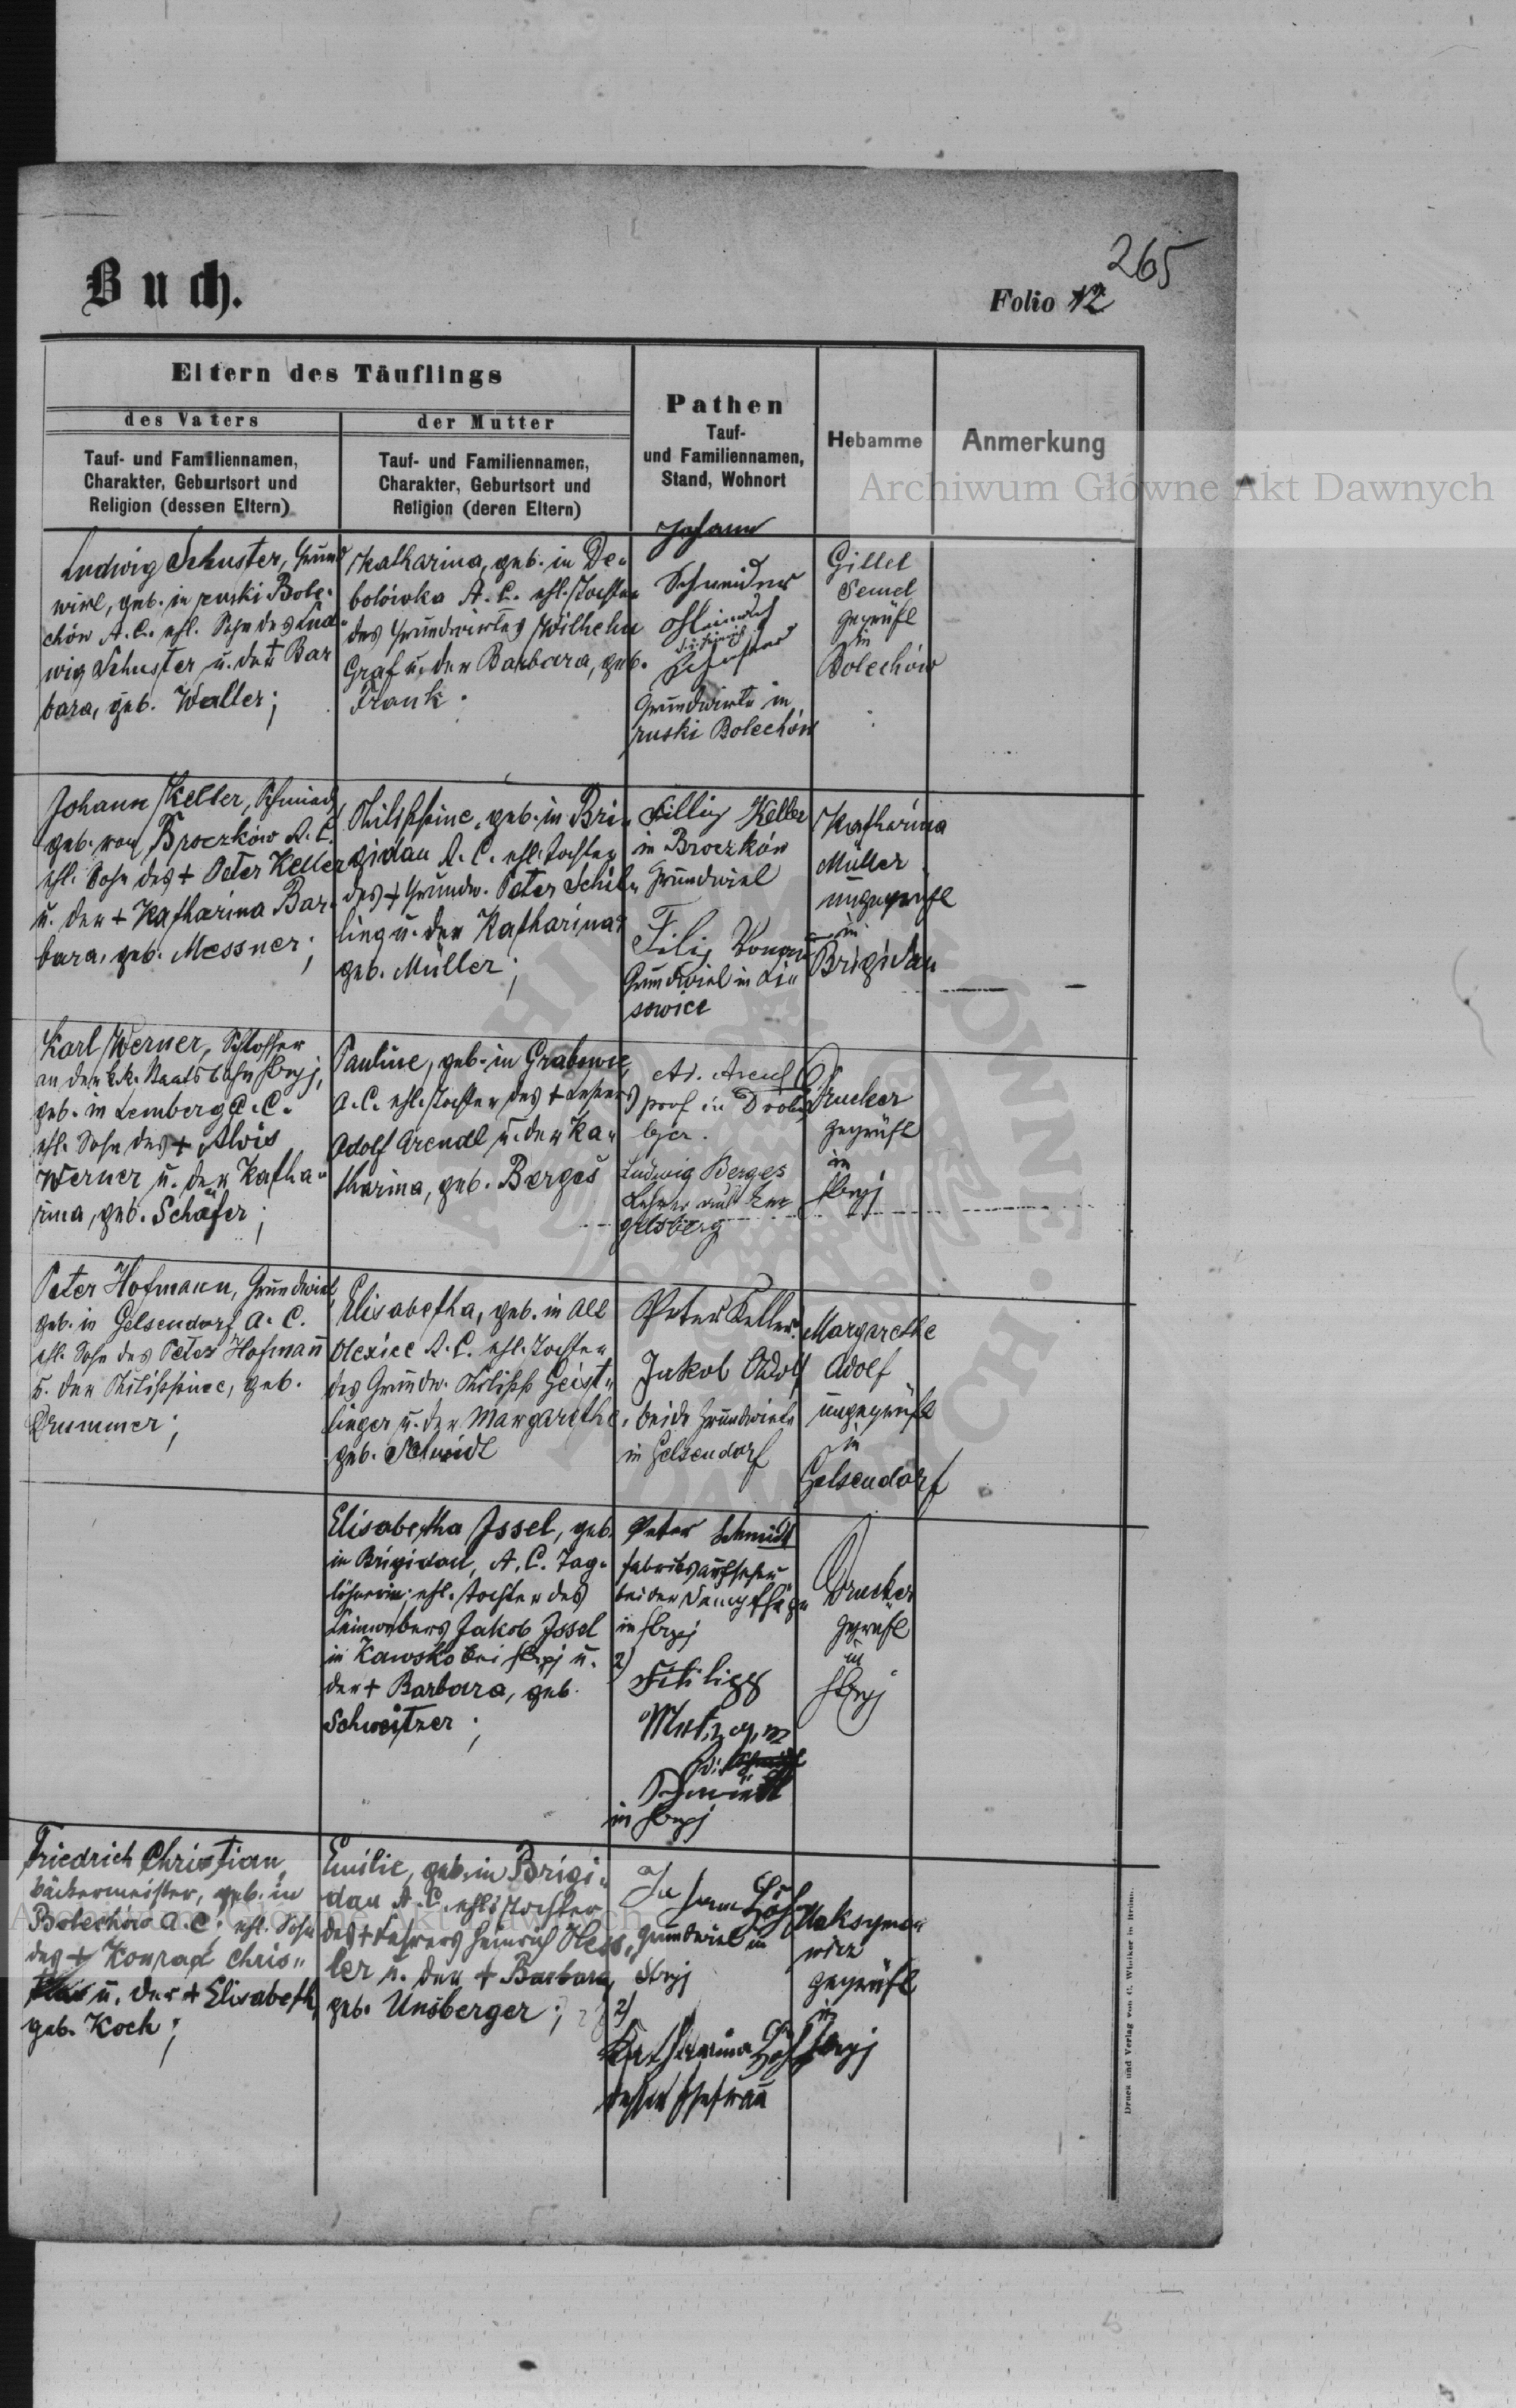 265
Buch.
Folio 12
Eltern des Täuflings
des Vaters
der Mutter
Tauf- und Familiennamen,
Charakter, Geburtsort und
Religion (dessen Eltern)
Tauf- und Familiennamen,
Charakter, Geburtsort und
Religion (deren Eltern)
Pathen
Tauf-
und Familiennamen,
Stand, Wohnort
Hebamme
Anmerkung
Archiwum Główne Akt Dawnych
Ludwig Schuster, Grund
wirt, geb. in ruski Bole-
chów A.C. ehl. Sohn des Lud-
wig Schuster u. der † Bar
bara, geb. Waller;
Katharina, geb. in De-
bolówka A.C. ehl. Tochter
des Grundwirtes Wilhelm
Graf u. der Barbara, geb.
Frank.
Johann
Schneider
Heinrich
Schuster
Grundwirte in
ruski Bolechów
Gillet
Semel
geprüft
in
Bolechów
Johann Keller, Schmied
geb. von Broczków A.C.
ehl. Sohn des † Peter Keller
u. der † Katharina Bar-
bara, geb. Messner;
Philippine, geb. in Bri-
gidau A.C. ehl. Tochter
des † Grundw. Peter Schil-
ling u. der Katharina
geb. Müller;
Fillip Keller
in Broczków
Grundwirt
Filip
Grundwirt in Li-
sowice
Katharina
Müller
ungeprüft
in
Brigidau
Karl Werner, Schlosser
an der k.k. Staatsbahn Stryj,
geb. in Lemberg A.C.
ehl. Sohn des † Alois
Werner u. der Katha-
rina, geb. Schäfer;
Pauline, geb. in Grabowce,
A.C. ehl. Tochter des † Lehrers
Adolf Arendt u. der Ka-
tharina, geb. Berges
Ad. Arendt
prof in Droho
bycz.
Ludwig Berges
Lehrer aus En
gelsberg
Drucker
geprüft
in
Stryj
Peter Hofmann, Grundwirt
geb. in Gelsendorf A.C.
ehl. Sohn des Peter Hofmann
u. der Philippine, geb.
Drummer;
Elisabetha, geb. in Alt
Olexice A.C. ehl. Tochter
des Grundw. Philipp Geist-
linger u. der Margarethe,
geb. Schmidt
Peter Keller
Jakob Adolf
beide Grundwirte
in Gelsendorf
Margarethe
Adolf
ungeprüft
in
Gelsendorf
Elisabetha Issel, geb.
in Brigidau, A.C. Tag-
löhnerin, ehl. Tochter des
Leinwebers Jakob Issel
in Kawsko bei Stryj u.
der † Barbara, geb.
Schweitzer;
Peter Schmidt
Fabriksaufseher
bei der Dampfsäge
in Stryj
2)
Philipp
Schmidt
in Stryj
Drucker
geprüft
in
Stryj
Friedrich Christian,
Bäckermeister, geb. in
Bolechów A.C. ehl. Sohn
des † Konrad Chris-
u. der † Elisabeth,
geb. Koch;
Emilie, geb. in Brigi-
dau A.C. ehl. Tochter
des † Lehrers Heinrich Hess-
ler u. der † Barbara,
geb. Unsberger;
Grundwirt in
Stryj
2)
Katharina
dessen Ehefrau
Maksymo-
wicz
geprüft
in
Stryj
Druck und Verlag von C. Winiker in Brünn.